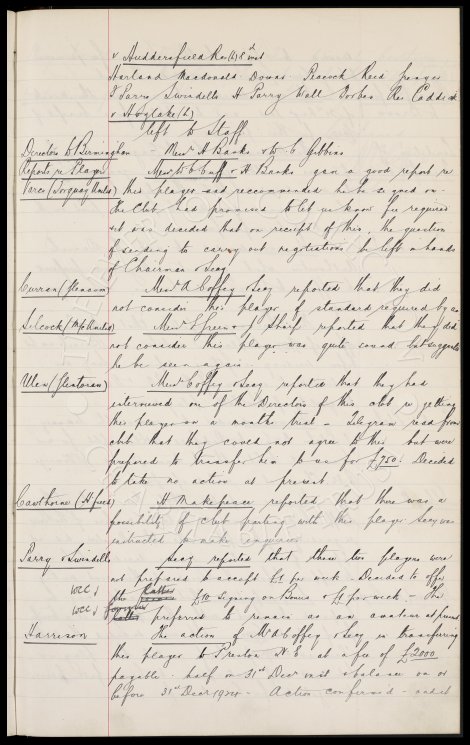 v Huddersfield Res (h) 8th inst
Harland Macdonald Downs Peacock Reid Grenyer
J Parry Swindells H Parry Wall Forbes Res Caddick
v Hoylake (h)
left to Staff
Directors to Birmingham - Messrs H Banks & W C Gibbins
Reports re Players Messrs W C Cuff & H Banks gave a good report re
Vare (Torquay United) this player and recommended he be signed on -
the club had promised to let us know fee required
& it was decided that on receipt of this, the question
of sending to carry out negotiations be left in hands
of Chairman & Secy
Curran (Glenavon) Messrs A Coffey & Secy reported that they did
not consider this player of standard required by us
Silcock (M/c United) Messrs Green & J Sharp reported that they did
not consider this player was quite sound but suggested
he be seen again
(Glentoran) Messrs Coffey & Secy reported that they had
interviewed one of the Directors of this club re getting
this player on a months trial - Telegram read from
club that they could not agree to this but were
prepared to transfer him to us for £750. Decided
to take no action at present
Cawthorne (H'field) H Makepeace reported that there was a
possibility of club parting with this player Secy was
instructed to make enquiries
Parry & Swindells Secy reported that these two players were
not prepared to accept £1 per week. Decided to offer
WCC the latter £10 signing on Bonus & £1 per week - The
WCC former preferred to remain as an amateur at present
Harrison The action of Mr A Coffey & Secy in transferring
this player to Preston N.E. at a fee of £2000
payable - half on 31st Decr inst & balance on or
before 31st Decr 1924 - Action confirmed - and it